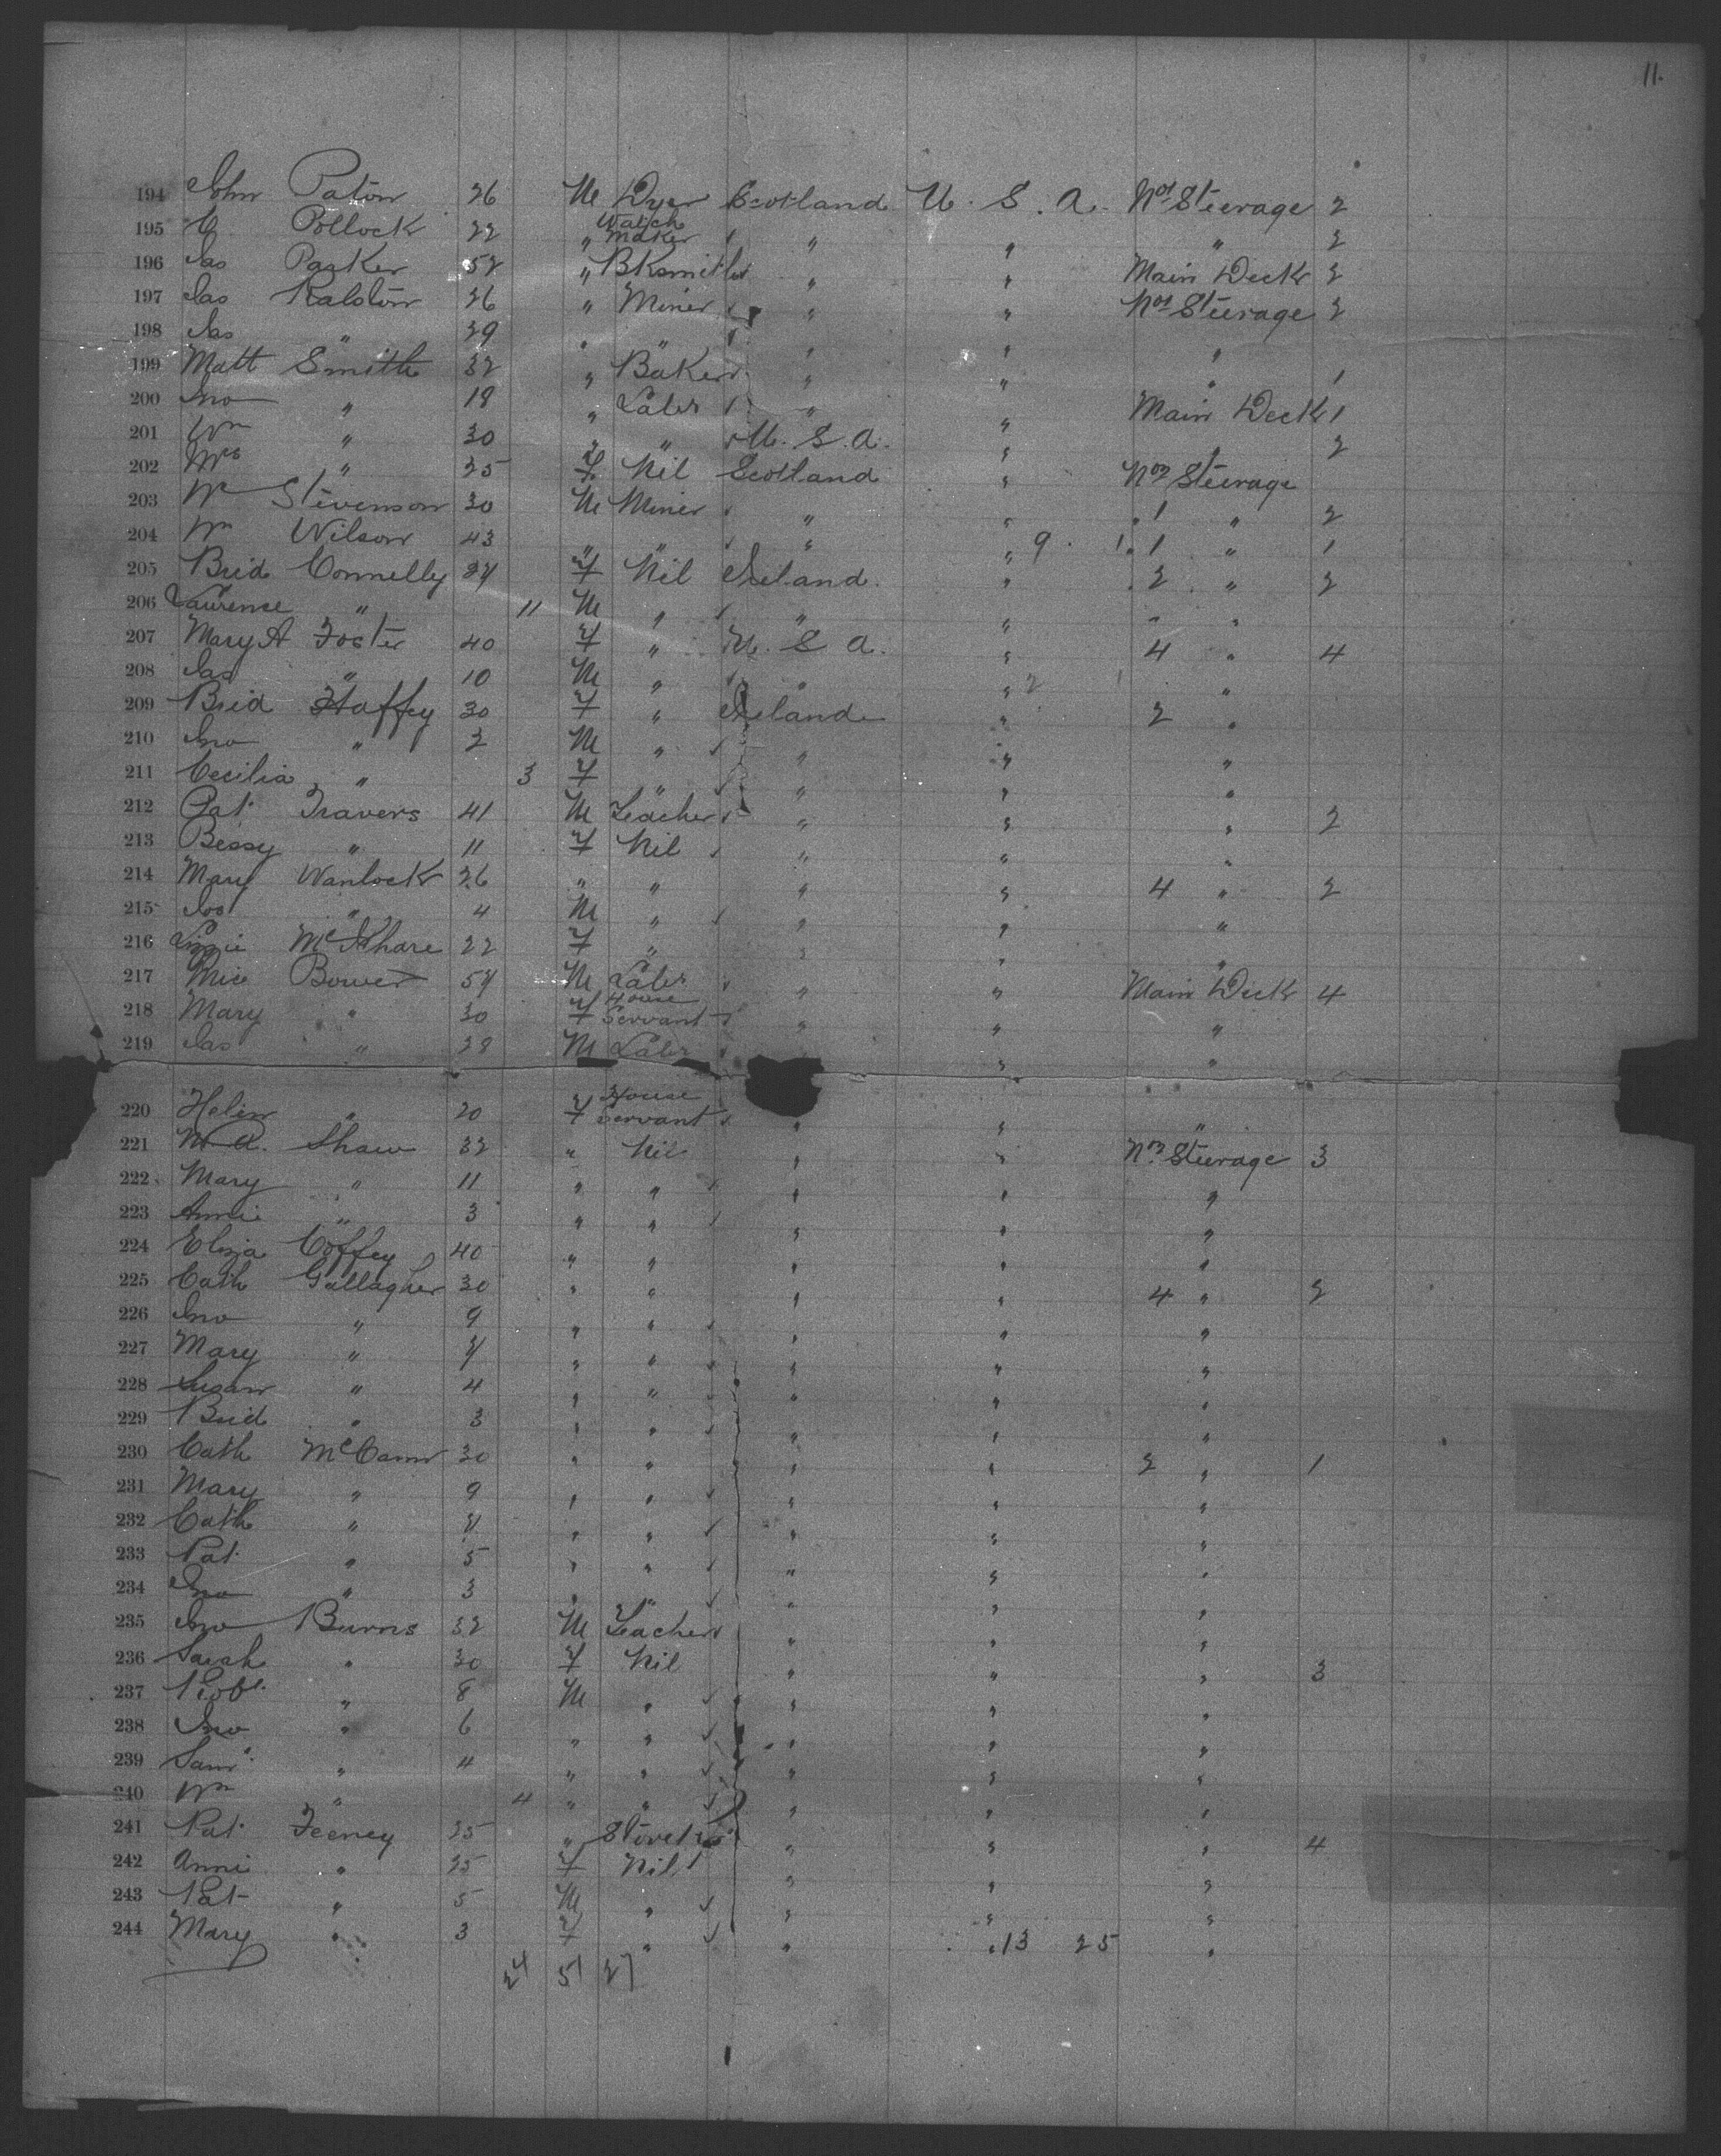 11.
194 John Paton 26 M Dyer Scotland U. S. A. No 1 Steerage 2
195 C Pollock 22 " Watch Maker " " " 2
196 Jas Parker 52 " Bksmith " " Main Deck 2
197 Jas Ralston 26 " Miner " " No 1 Steerage 2
198 Jas " 39 " " " " "
199 Matt Smith 32 " Baker " " " 1
200 Jno " 18 " Labr " " Main Deck 1
201 Wm " 30 " " U. S. A. " " 2
202 Mrs " 25 F Nil Scotland " No 2 Steerage
203 Wm Stevenson 30 M Miner " " 1 " 2
204 Wm Wilson 43 " " " " 9 1 1 " 1
205 Brid Connelly 27 F Nil Ireland " 2 " 2
206 Laurence " 11 M " " " " "
207 Mary A Foster 40 F " U. S. A. " 4 " 4
208 Jas " 10 M " " " 2 "
209 Brid Haffey 30 F " Ireland " 2 "
210 Jno " 2 M " " " "
211 Cecilia " 3 F " " " "
212 Pat Travers 41 M Teacher " " " 2
213 Bessy " 11 F Nil " " "
214 Mary Wanlock 26 " " " " 4 " 2
215 Jos " 4 M " " " "
216 Lizzie 22 F " " " "
217 Mic Bower 57 M Labr " " Main Deck 4
218 Mary " 30 F House Servant " " "
219 Jas " 28 M Labr " "
220 Helen " 20 F House Servant " " "
221 M. A. Shaw 32 " Nil " " No 3 Steerage 3
222 Mary " 11 " " " " "
223 Annie " 3 " " " " "
224 Eliza Coffey 40 " " " " "
225 Cath Gallagher 30 " " " " 4 " 2
226 Jno " 9 " " " " "
227 Mary " 7 " " " " "
228 Susan " 4 " " " " "
229 Brid " 3 " " " " "
230 Cath McCann 30 " " " " 2 " 1
231 Mary " 9 " " " " "
232 Cath " 7 " " " " "
233 Pat " 5 " " " " "
234 Jno " 3 " " " " "
235 Jno Burns 32 M Teacher " " "
236 Sarah " 30 F Nil " " " 3
237 Robt " 8 M " " " "
238 Jno " 6 " " " " "
239 Saml " 4 " " " " "
240 Wm " 4 " " " " "
241 Pat Feeney 35 " " " " 4
242 Annie " 35 F Nil " " "
243 Pat " 5 M " " " "
244 Mary " 3 F " " " 13 25 "
24 51 27